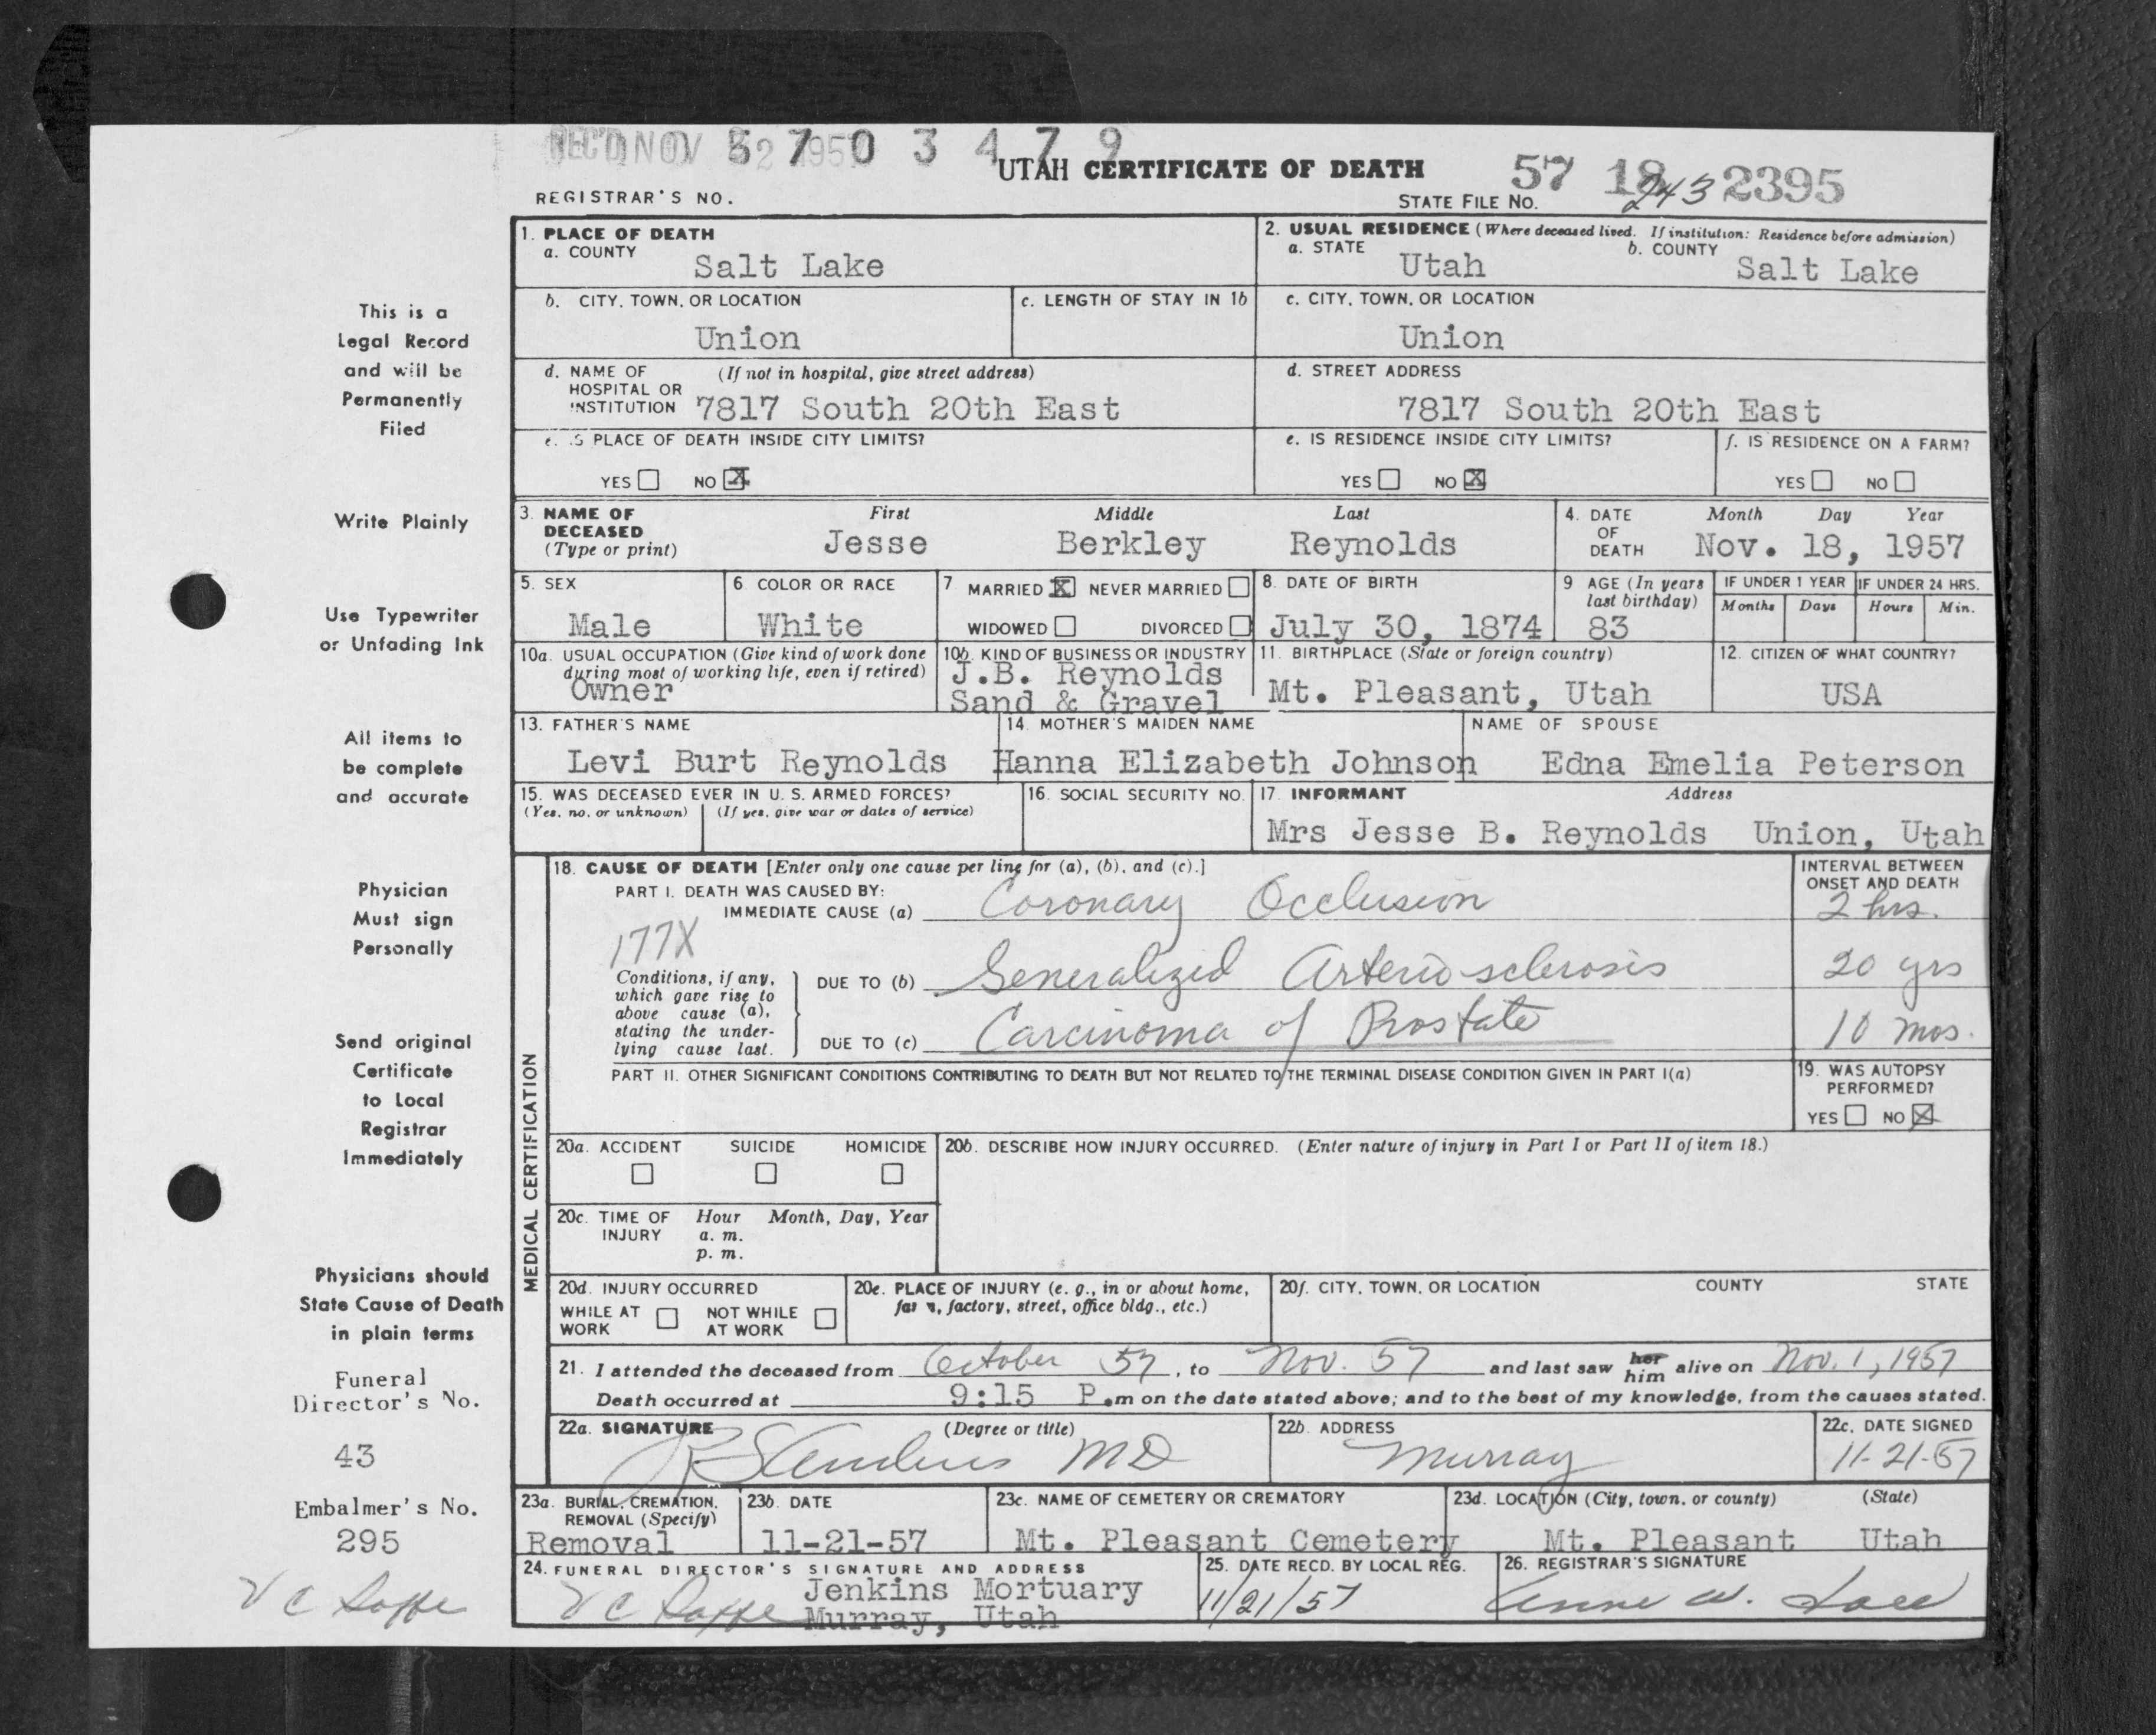 REC'D NOV 22 1957
57 03479
UTAH CERTIFICATE OF DEATH
57 18 2395
243
REGISTRAR'S NO.
STATE FILE NO.
1. PLACE OF DEATH
a. COUNTY
Salt Lake
2. USUAL RESIDENCE (Where deceased lived. If institution: Residence before admission)
a. STATE
Utah
b. COUNTY
Salt Lake
b. CITY, TOWN, OR LOCATION
Union
c. LENGTH OF STAY IN 1b
c. CITY, TOWN, OR LOCATION
Union
d. NAME OF HOSPITAL OR INSTITUTION
(If not in hospital, give street address)
7817 South 20th East
d. STREET ADDRESS
7817 South 20th East
e. IS PLACE OF DEATH INSIDE CITY LIMITS?
YES NO X
e. IS RESIDENCE INSIDE CITY LIMITS?
YES NO X
f. IS RESIDENCE ON A FARM?
YES NO
3. NAME OF DECEASED (Type or print)
First Middle Last
Jesse Berkley Reynolds
4. DATE OF DEATH
Month Day Year
Nov. 18, 1957
5. SEX
Male
6. COLOR OR RACE
White
7. MARRIED X NEVER MARRIED
WIDOWED DIVORCED
8. DATE OF BIRTH
July 30, 1874
9 AGE (In years last birthday)
83
IF UNDER 1 YEAR
Months Days
IF UNDER 24 HRS.
Hours Min.
10a. USUAL OCCUPATION (Give kind of work done during most of working life, even if retired)
Owner
10b. KIND OF BUSINESS OR INDUSTRY
J.B. Reynolds
Sand & Gravel
11. BIRTHPLACE (State or foreign country)
Mt. Pleasant, Utah
12. CITIZEN OF WHAT COUNTRY?
USA
13. FATHER'S NAME
Levi Burt Reynolds
14. MOTHER'S MAIDEN NAME
Hanna Elizabeth Johnson
NAME OF SPOUSE
Edna Emelia Peterson
15. WAS DECEASED EVER IN U. S. ARMED FORCES?
(Yes, no, or unknown) (If yes, give war or dates of service)
16. SOCIAL SECURITY NO.
17. INFORMANT Address
Mrs Jesse B. Reynolds Union, Utah
MEDICAL CERTIFICATION
18. CAUSE OF DEATH [Enter only one cause per line for (a), (b), and (c).]
INTERVAL BETWEEN ONSET AND DEATH
PART I. DEATH WAS CAUSED BY:
IMMEDIATE CAUSE (a) Coronary Occlusion 2 hrs.
177X
Conditions, if any, which gave rise to above cause (a), stating the underlying cause last.
DUE TO (b) Generalized Arterio-sclerosis 20 yrs
DUE TO (c) Carcinoma of Prostate 10 mos.
PART II. OTHER SIGNIFICANT CONDITIONS CONTRIBUTING TO DEATH BUT NOT RELATED TO THE TERMINAL DISEASE CONDITION GIVEN IN PART I(a)
19. WAS AUTOPSY PERFORMED?
YES NO X
20a. ACCIDENT SUICIDE HOMICIDE
20b. DESCRIBE HOW INJURY OCCURRED. (Enter nature of injury in Part I or Part II of item 18.)
20c. TIME OF INJURY
Hour Month, Day, Year
a. m.
p. m.
20d. INJURY OCCURRED
WHILE AT WORK NOT WHILE AT WORK
20e. PLACE OF INJURY (e. g., in or about home, farm, factory, street, office bldg., etc.)
20f. CITY, TOWN, OR LOCATION COUNTY STATE
21. I attended the deceased from October 57, to Nov. 57 and last saw her him alive on Nov. 1, 1957
Death occurred at 9:15 P.m on the date stated above; and to the best of my knowledge, from the causes stated.
22a. SIGNATURE (Degree or title)
MD
22b. ADDRESS
Murray
22c. DATE SIGNED
11-21-57
23a. BURIAL, CREMATION, REMOVAL (Specify)
Removal
23b. DATE
11-21-57
23c. NAME OF CEMETERY OR CREMATORY
Mt. Pleasant Cemetery
23d. LOCATION (City, town, or county) (State)
Mt. Pleasant Utah
24. FUNERAL DIRECTOR'S SIGNATURE AND ADDRESS
Jenkins Mortuary
Murray, Utah
25. DATE RECD. BY LOCAL REG.
11/21/57
26. REGISTRAR'S SIGNATURE
This is a
Legal Record
and will be
Permanently
Filed
Write Plainly
Use Typewriter
or Unfading Ink
All items to
be complete
and accurate
Physician
Must sign
Personally
Send original
Certificate
to Local
Registrar
Immediately
Physicians should
State Cause of Death
in plain terms
Funeral
Director's No.
43
Embalmer's No.
295